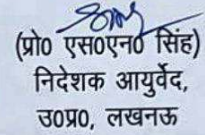 (प्रो० एस०एन० सिंह)
निदेशक आयुर्वेद,
उ०प्र०, लखनऊ